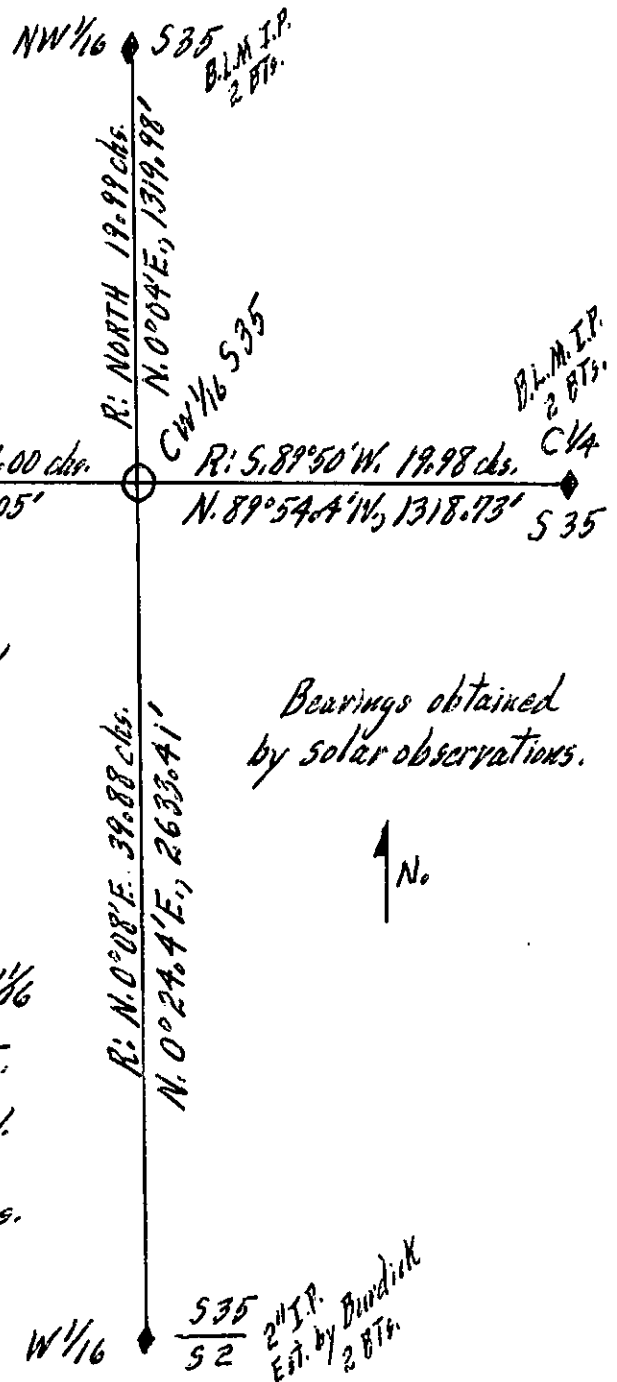 NW 1/16 S35
B.L.M. I.P.
2 BTs.
R: NORTH 19.99 chs.
N. 0°04'E., 1319.98'
CW 1/16 S35
B.L.M. I.P.
2 BTs.
C 1/4
S 35
.00 chs.
05'
R: S. 89°50'W. 19.98 chs.
N. 89°54.4'W., 1318.73'
Bearings obtained
by solar observations.
N.
R: N. 0°08'E. 39.88 chs.
N. 0°24.4'E., 2633.41'
W 1/16
S35
S2
2" I.P.
Est. by Burdick
2 BTs.